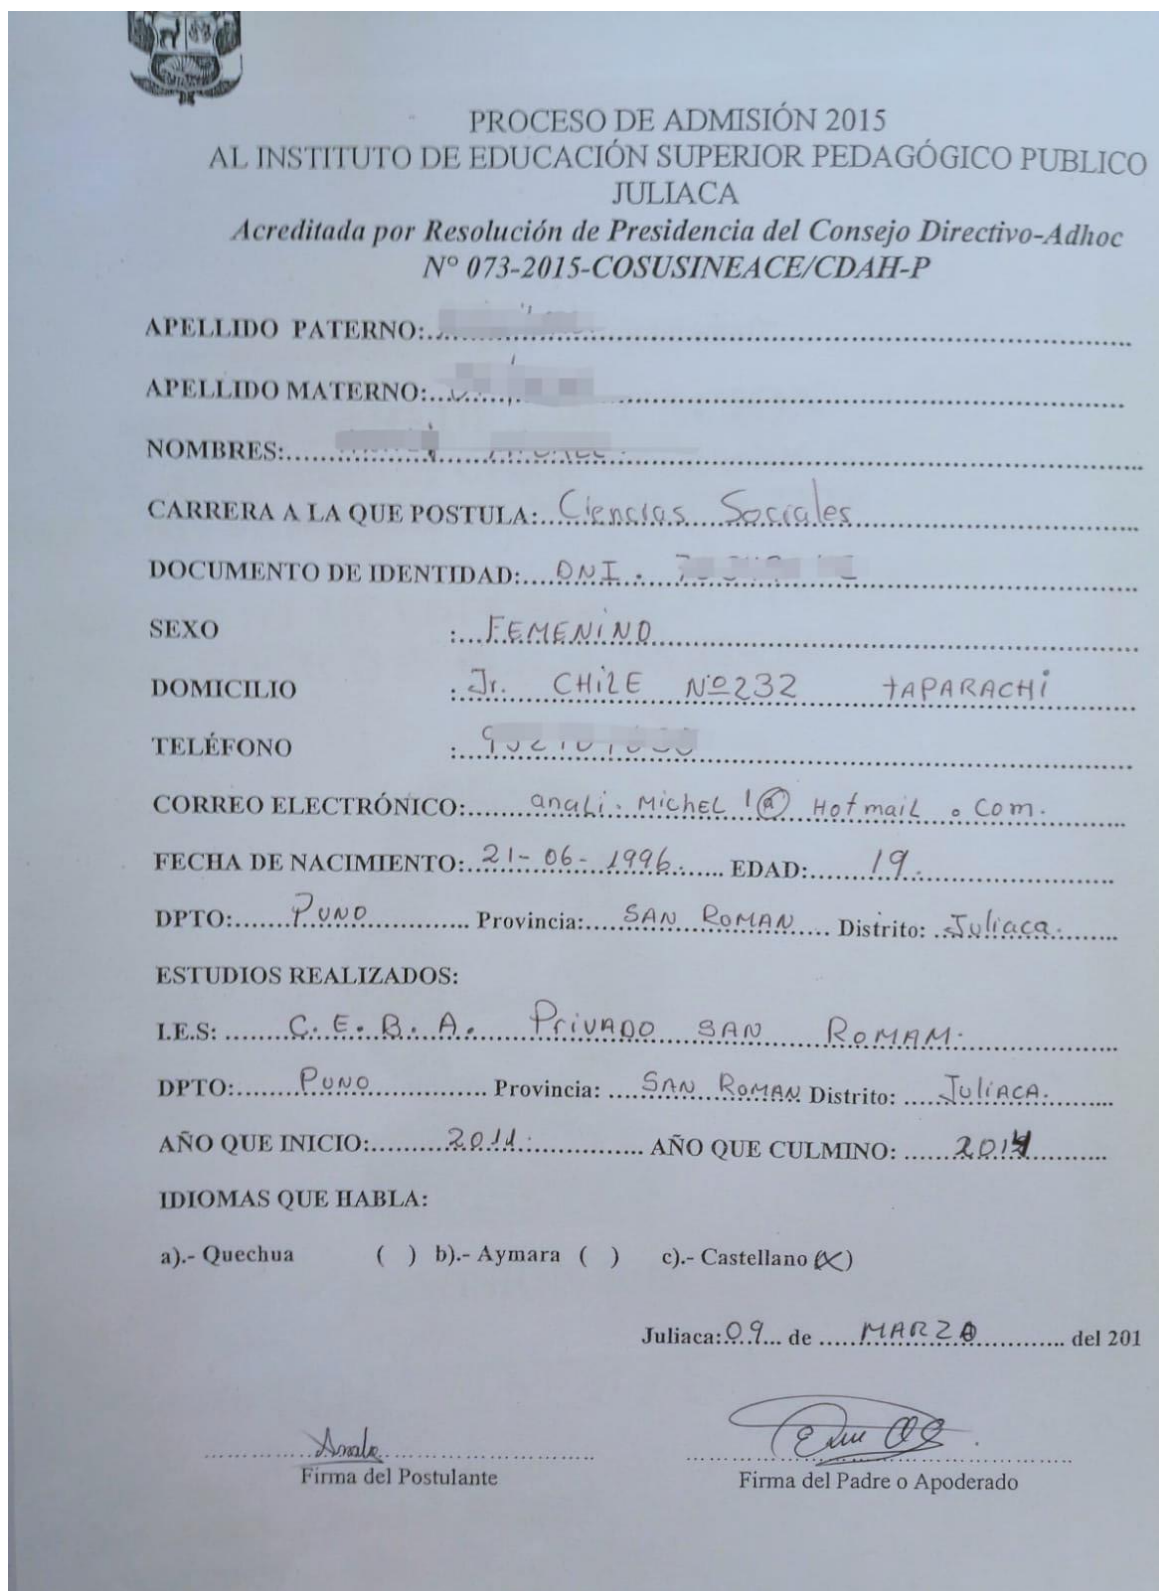 PROCESO DE ADMISIÓN 2015
AL INSTITUTO DE EDUCACIÓN SUPERIOR PEDAGÓGICO PUBLICO
JULIACA
Acreditada por Resolución de Presidencia del Consejo Directivo-Adhoc
N° 073-2015-COSUSINEACE/CDAH-P
APELLIDO PATERNO:
APELLIDO MATERNO:
NOMBRES:
CARRERA A LA QUE POSTULA: Ciencias Sociales
DOCUMENTO DE IDENTIDAD: DNI.
SEXO : FEMENINO
DOMICILIO : Jr. CHiLE Nº232 tAPARACHi
TELÉFONO :
CORREO ELECTRÓNICO: anali.MicheL1@HotmaiL.com.
FECHA DE NACIMIENTO: 21-06-1996. EDAD: 19.
DPTO: PUNO Provincia: SAN ROMAN Distrito: Juliaca.
ESTUDIOS REALIZADOS:
I.E.S: C.E.B.A. PriVADO SAN ROMAM.
DPTO: PUNO Provincia: SAN ROMAN Distrito: JuliACA.
AÑO QUE INICIO: 2011. AÑO QUE CULMINO: 2014
IDIOMAS QUE HABLA:
a).- Quechua ( ) b).- Aymara ( ) c).- Castellano (X)
Juliaca: 09 de MARZO del 201
Firma del Postulante Firma del Padre o Apoderado